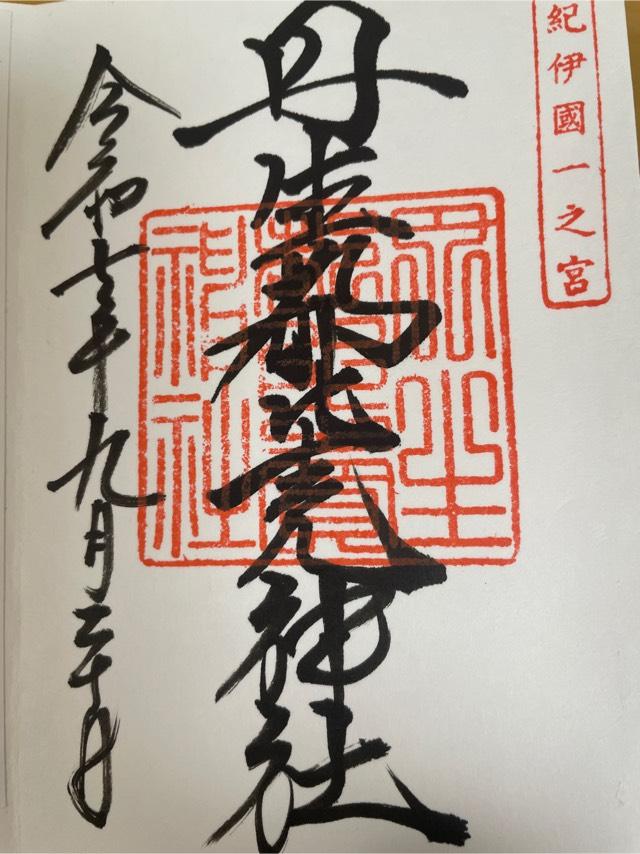 紀伊國一之宮
丹生都比売神社
令和七年九月二十日